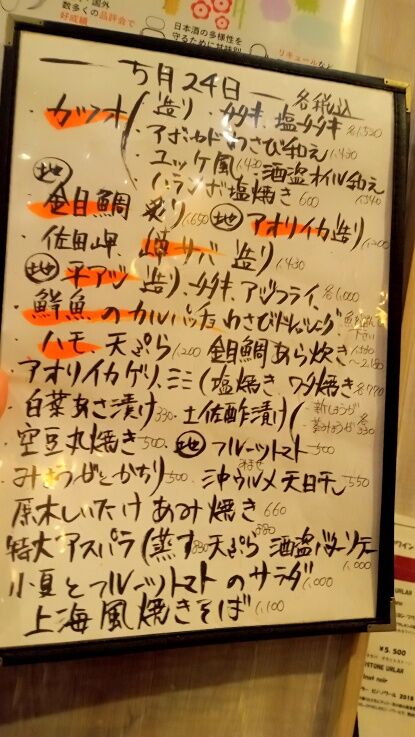 数多くの品評会で
好成績
日本酒の多様性を
リキュールなど
5月24日 各税込
・カツオ(造り・タタキ・塩タタキ 各1,520
・アボカドわさび和え 1,430
・ユッケ風 1,430・酒盗オイル和え 1,540
・ハランボ塩焼き 600
地 金目鯛 炙り 1,650 地 アオリイカ造り 1,200
・佐田岬、岬サバ造り 1,430
・地 平アジ 造り・タタキ、アジフライ、各1,000
・鮮魚のカルパッチョわさびドレッシング
・ハモ、天ぷら 1,200 金目鯛あら炊き
・アオリイカゲソ、ミミ(塩焼き、ワタ焼き 各770
・白菜あさ漬け 330・土佐酢漬け(新しょうが みょうが 各330
・空豆丸焼き 500 地 フルーツトマト 500
・みょうがとかちり 500・沖ウルメ天日干し 550
原木しいたけあみ焼き 660
特大アスパラ(蒸す 880 天ぷら 880 酒盗バターソテー 1,000
小夏とフルーツトマトのサラダ 1,000
上海風焼きそば 1,100
¥5,500
2018